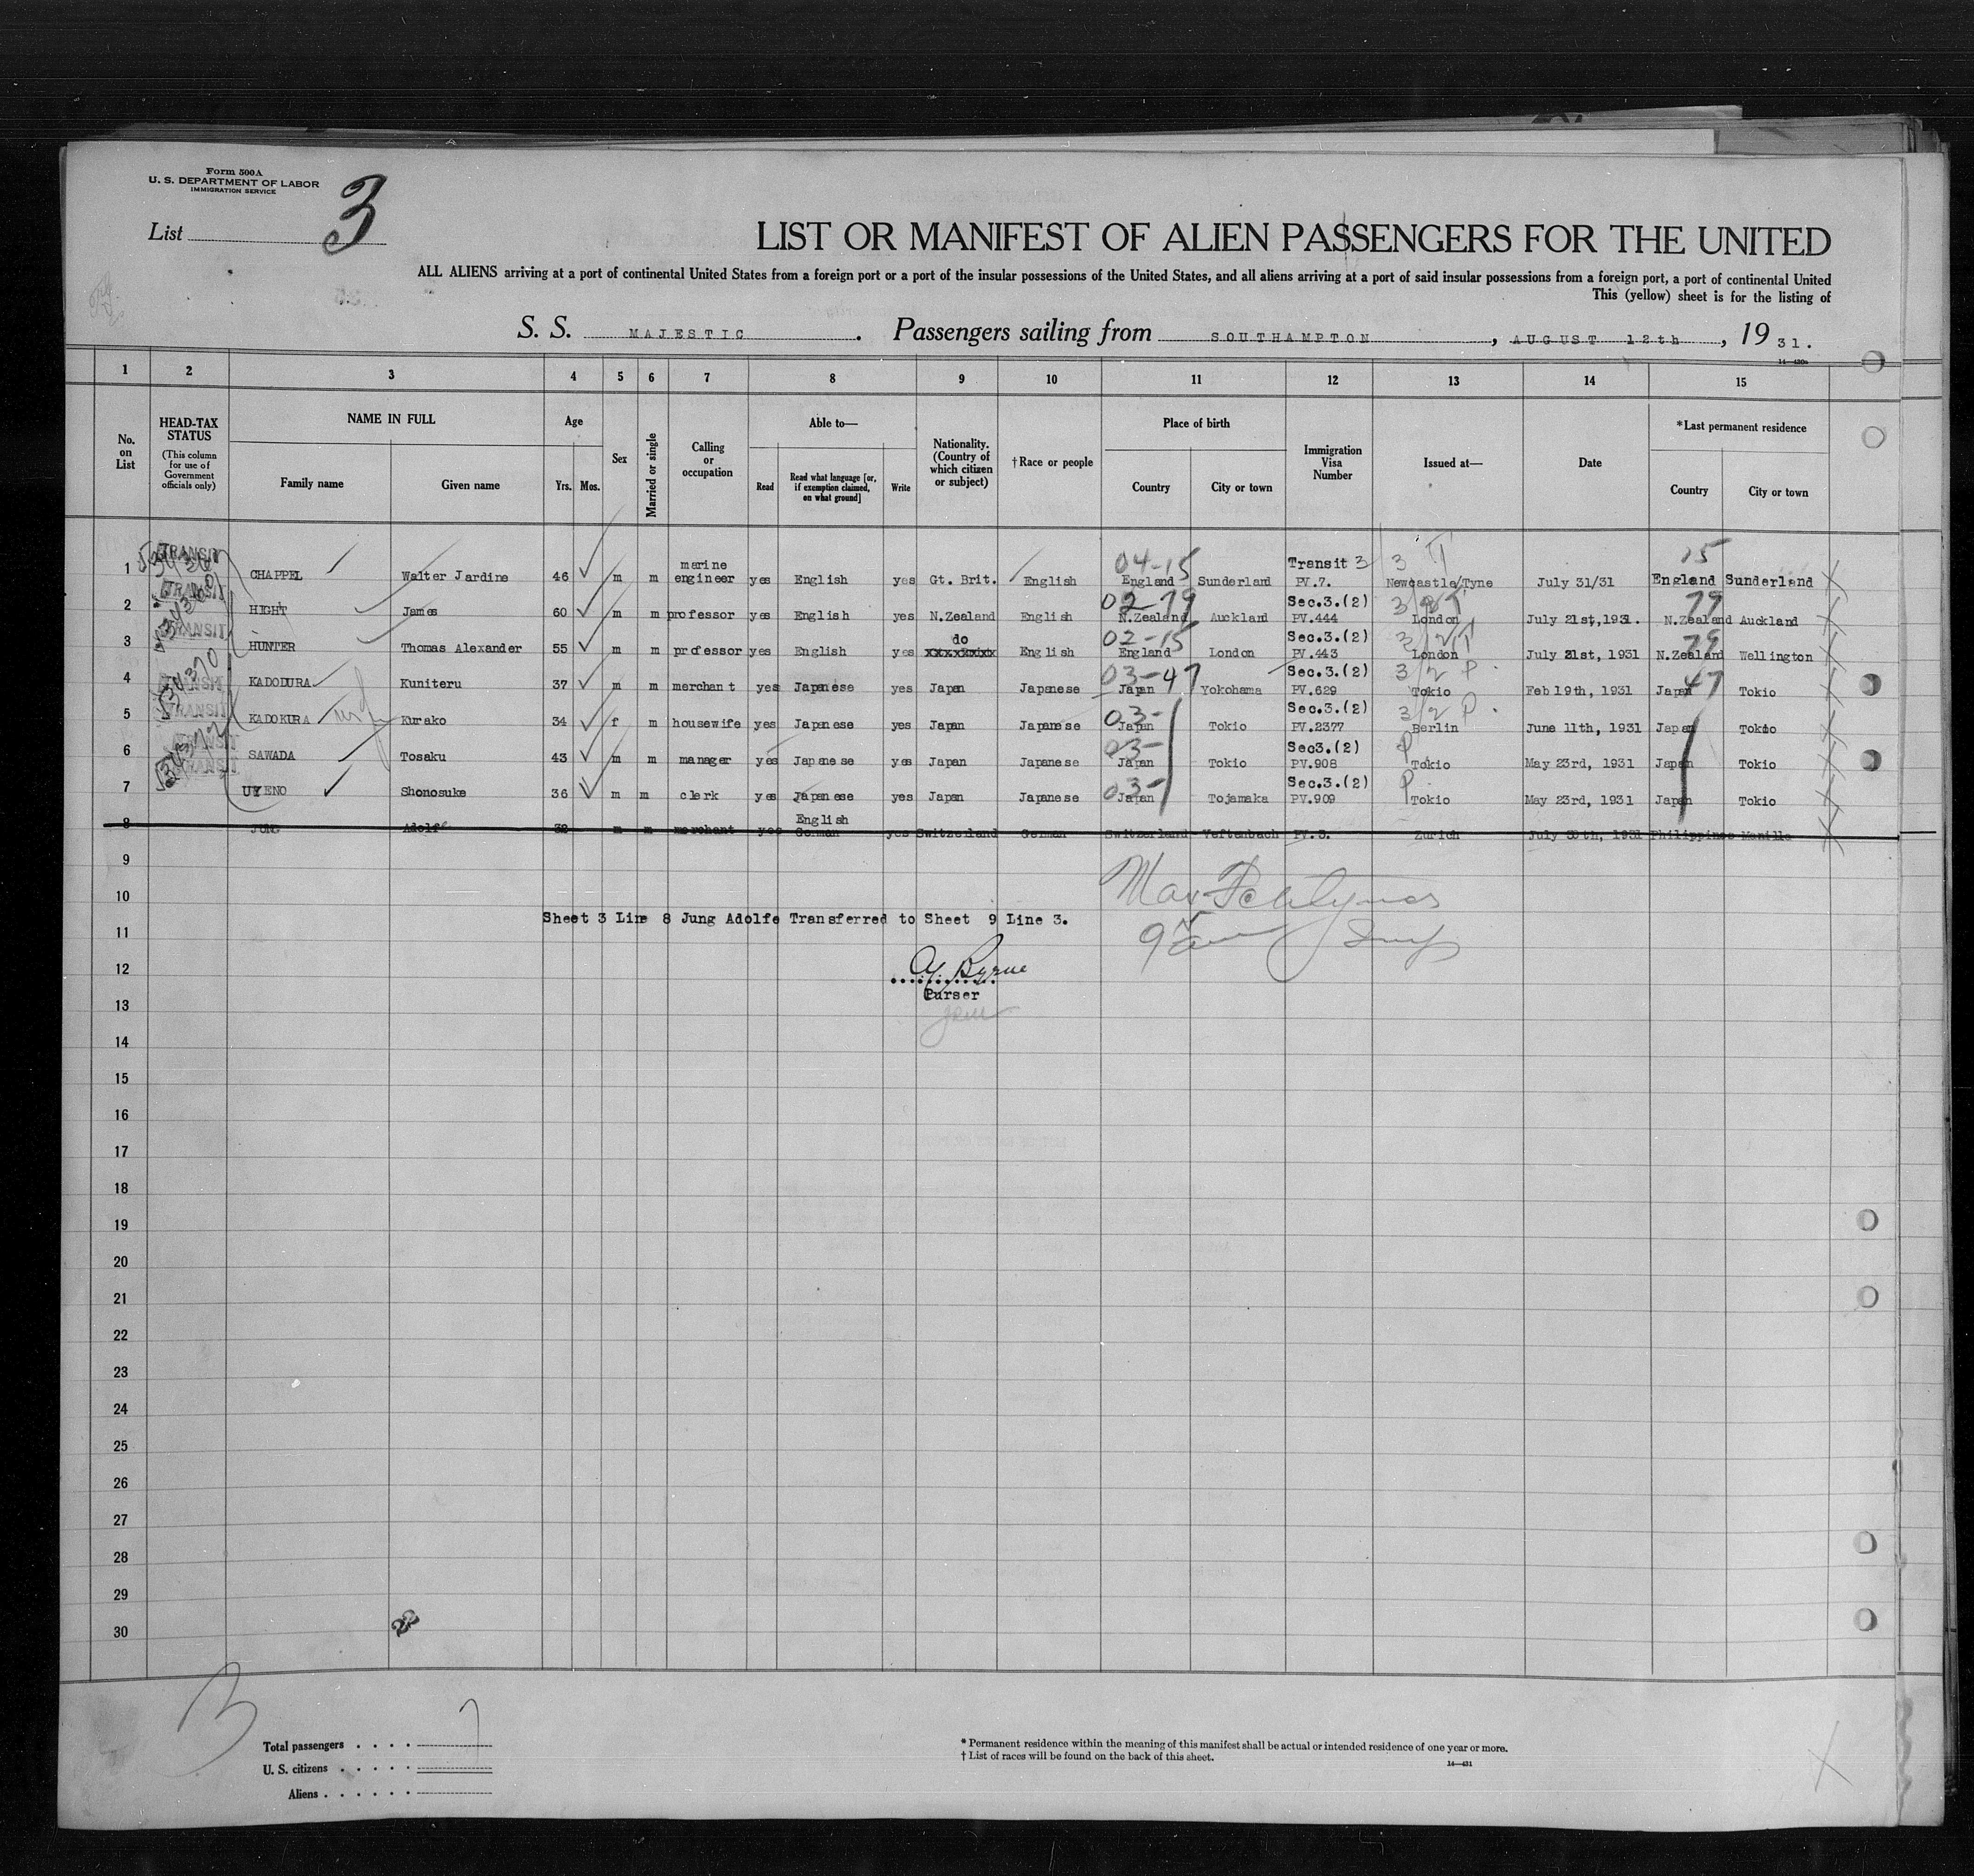 Form 500A
U. S. DEPARTMENT OF LABOR
IMMIGRATION SERVICE
List 3
LIST OR MANIFEST OF ALIEN PASSENGERS FOR THE UNITED
ALL ALIENS arriving at a port of continental United States from a foreign port or a port of the insular possessions of the United States, and all aliens arriving at a port of said insular possessions from a foreign port, a port of continental United
This (yellow) sheet is for the listing of
S. S. MAJESTIC. Passengers sailing from SOUTHAMPTON, AUGUST 12th, 19 31.
1 2 3 4 5 6 7 8 9 10 11 12 13 14 15
No. on List
HEAD-TAX STATUS (This column for use of Government officials only)
NAME IN FULL Family name Given name
Age Yrs. Mos.
Sex
Married or single
Calling or occupation
Able to— Read Read what language [or, if exemption claimed, on what ground] Write
Nationality. (Country of which citizen or subject)
†Race or people
Place of birth Country City or town
Immigration Visa Number
Issued at—
Date
*Last permanent residence Country City or town
1 TRANSIT CHAPPEL Walter Jardine 46 m m marine engineer yes English yes Gt. Brit. English 04-15 England Sunderland Transit 3 PV.7. Newcastle/Tyne July 31/31 15 England Sunderland
2 TRANSIT HIGHT James 60 m m professor yes English yes N.Zealand English 02-79 N.Zealand Auckland Sec.3.(2) PV.444 London July 21st,1931. 79 N.Zealand Auckland
3 TRANSIT HUNTER Thomas Alexander 55 m m professor yes English yes do xxxxxxxxx English 02-15 England London Sec.3.(2) PV.443 3/2T London July 21st, 1931 79 N.Zealand Wellington
4 TRANSIT KADODURA Kuniteru 37 m m merchant yes Japanese yes Japan Japanese 03-47 Japan Yokohama Sec.3.(2) PV.629 3/2 P. Tokio Feb 19th, 1931 47 Japan Tokio
5 TRANSIT KADOKURA Kurako 34 f m housewife yes Japanese yes Japan Japanese 03- Japan Tokio Sec.3.(2) PV.2377 3/2 P. Berlin June 11th, 1931 Japan Tokio
6 TRANSIT SAWADA Tosaku 43 m m manager yes Japanese yes Japan Japanese 03- Japan Tokio Sec3.(2) PV.908 P Tokio May 23rd, 1931 Japan Tokio
7 TRANSIT UYENO Shonosuke 36 m m clerk yes Japanese yes Japan Japanese 03- Japan Tojamaka Sec.3.(2) PV.909 P. Tokio May 23rd, 1931 Japan Tokio
8 JUNG Adolfe 32 m m merchant yes English German yes Switzerland German Switzerland PV.3. Zurich July 30th, 1931 Philippines Manilla
9
10
Sheet 3 Line 8 Jung Adolfe Transferred to Sheet 9 Line 3.
11
12
Byrne
Purser
13
14
15
16
17
18
19
20
21
22
23
24
25
26
27
28
29
30
3
Total passengers . . . . 7
U. S. citizens . . . . .
Aliens . . . . . .
* Permanent residence within the meaning of this manifest shall be actual or intended residence of one year or more.
† List of races will be found on the back of this sheet.
14—431